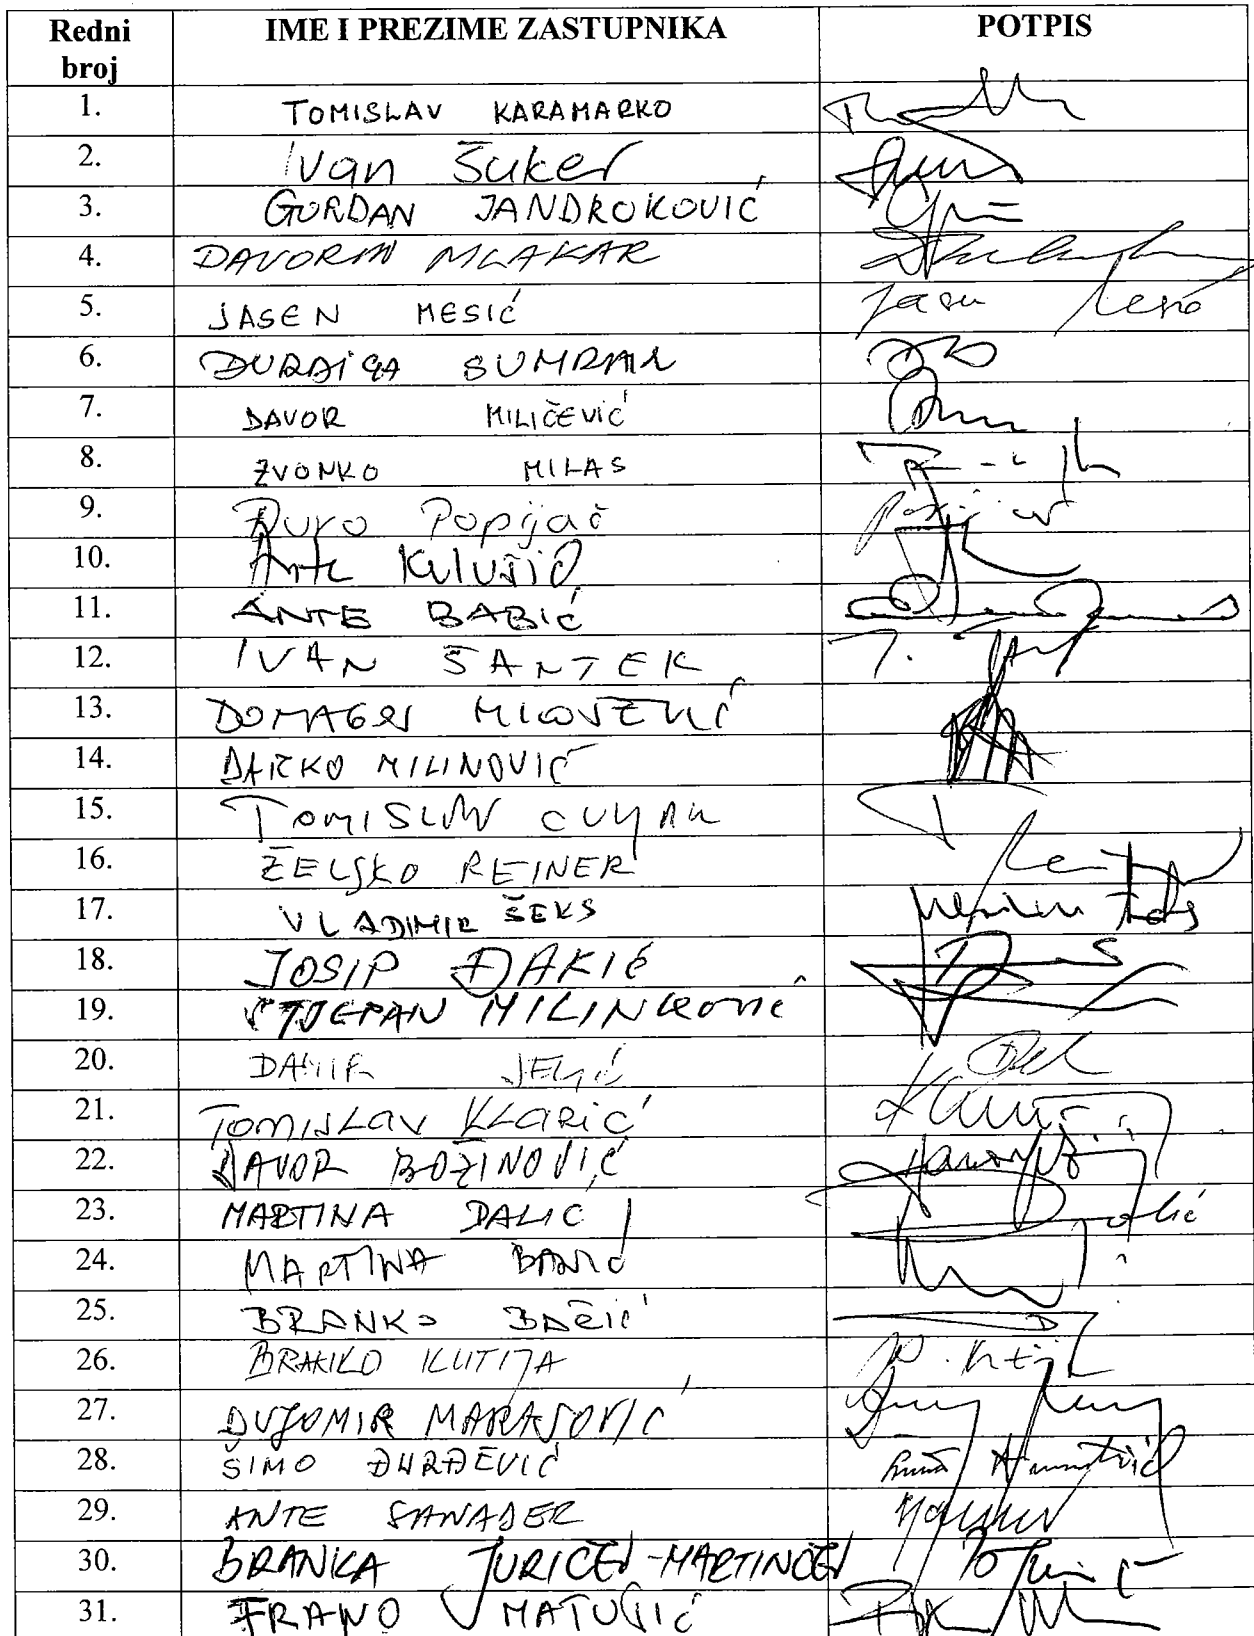 Redni broj IME I PREZIME ZASTUPNIKA POTPIS
1. TOMISLAV KARAMARKO
2. Ivan Šuker
3. GORDAN JANDROKOVIĆ
4. DAVORIN MLAKAR
5. JASEN MESIĆ Jasen Mesić
6. ĐURĐICA SUMRAK
7. DAVOR MILIČEVIĆ
8. ZVONKO MILAS
9. Đuro Popijač
10. Ante Kulušić
11. ANTE BABIĆ
12. IVAN ŠANTEK
13. DOMAGOJ MILOŠEVIĆ
14. DARKO MILINOVIĆ
15. TOMISLAV ČULJAK
16. ŽELJKO REINER
17. VLADIMIR ŠEKS
18. JOSIP ĐAKIĆ
19. STJEPAN MILINKOVIĆ
20. DAMIR JELIĆ
21. TOMISLAV KLARIĆ
22. DAVOR BOŽINOVIĆ
23. MARTINA DALIĆ
24. MARTINA BANIĆ
25. BRANKO BAČIĆ
26. BRANKO KUTIJA
27. DUJOMIR MARASOVIĆ
28. ŠIMO ĐURĐEVIĆ
29. ANTE SANADER
30. BRANKA JURIČEV-MARTINČEV
31. FRANO MATUŠIĆ